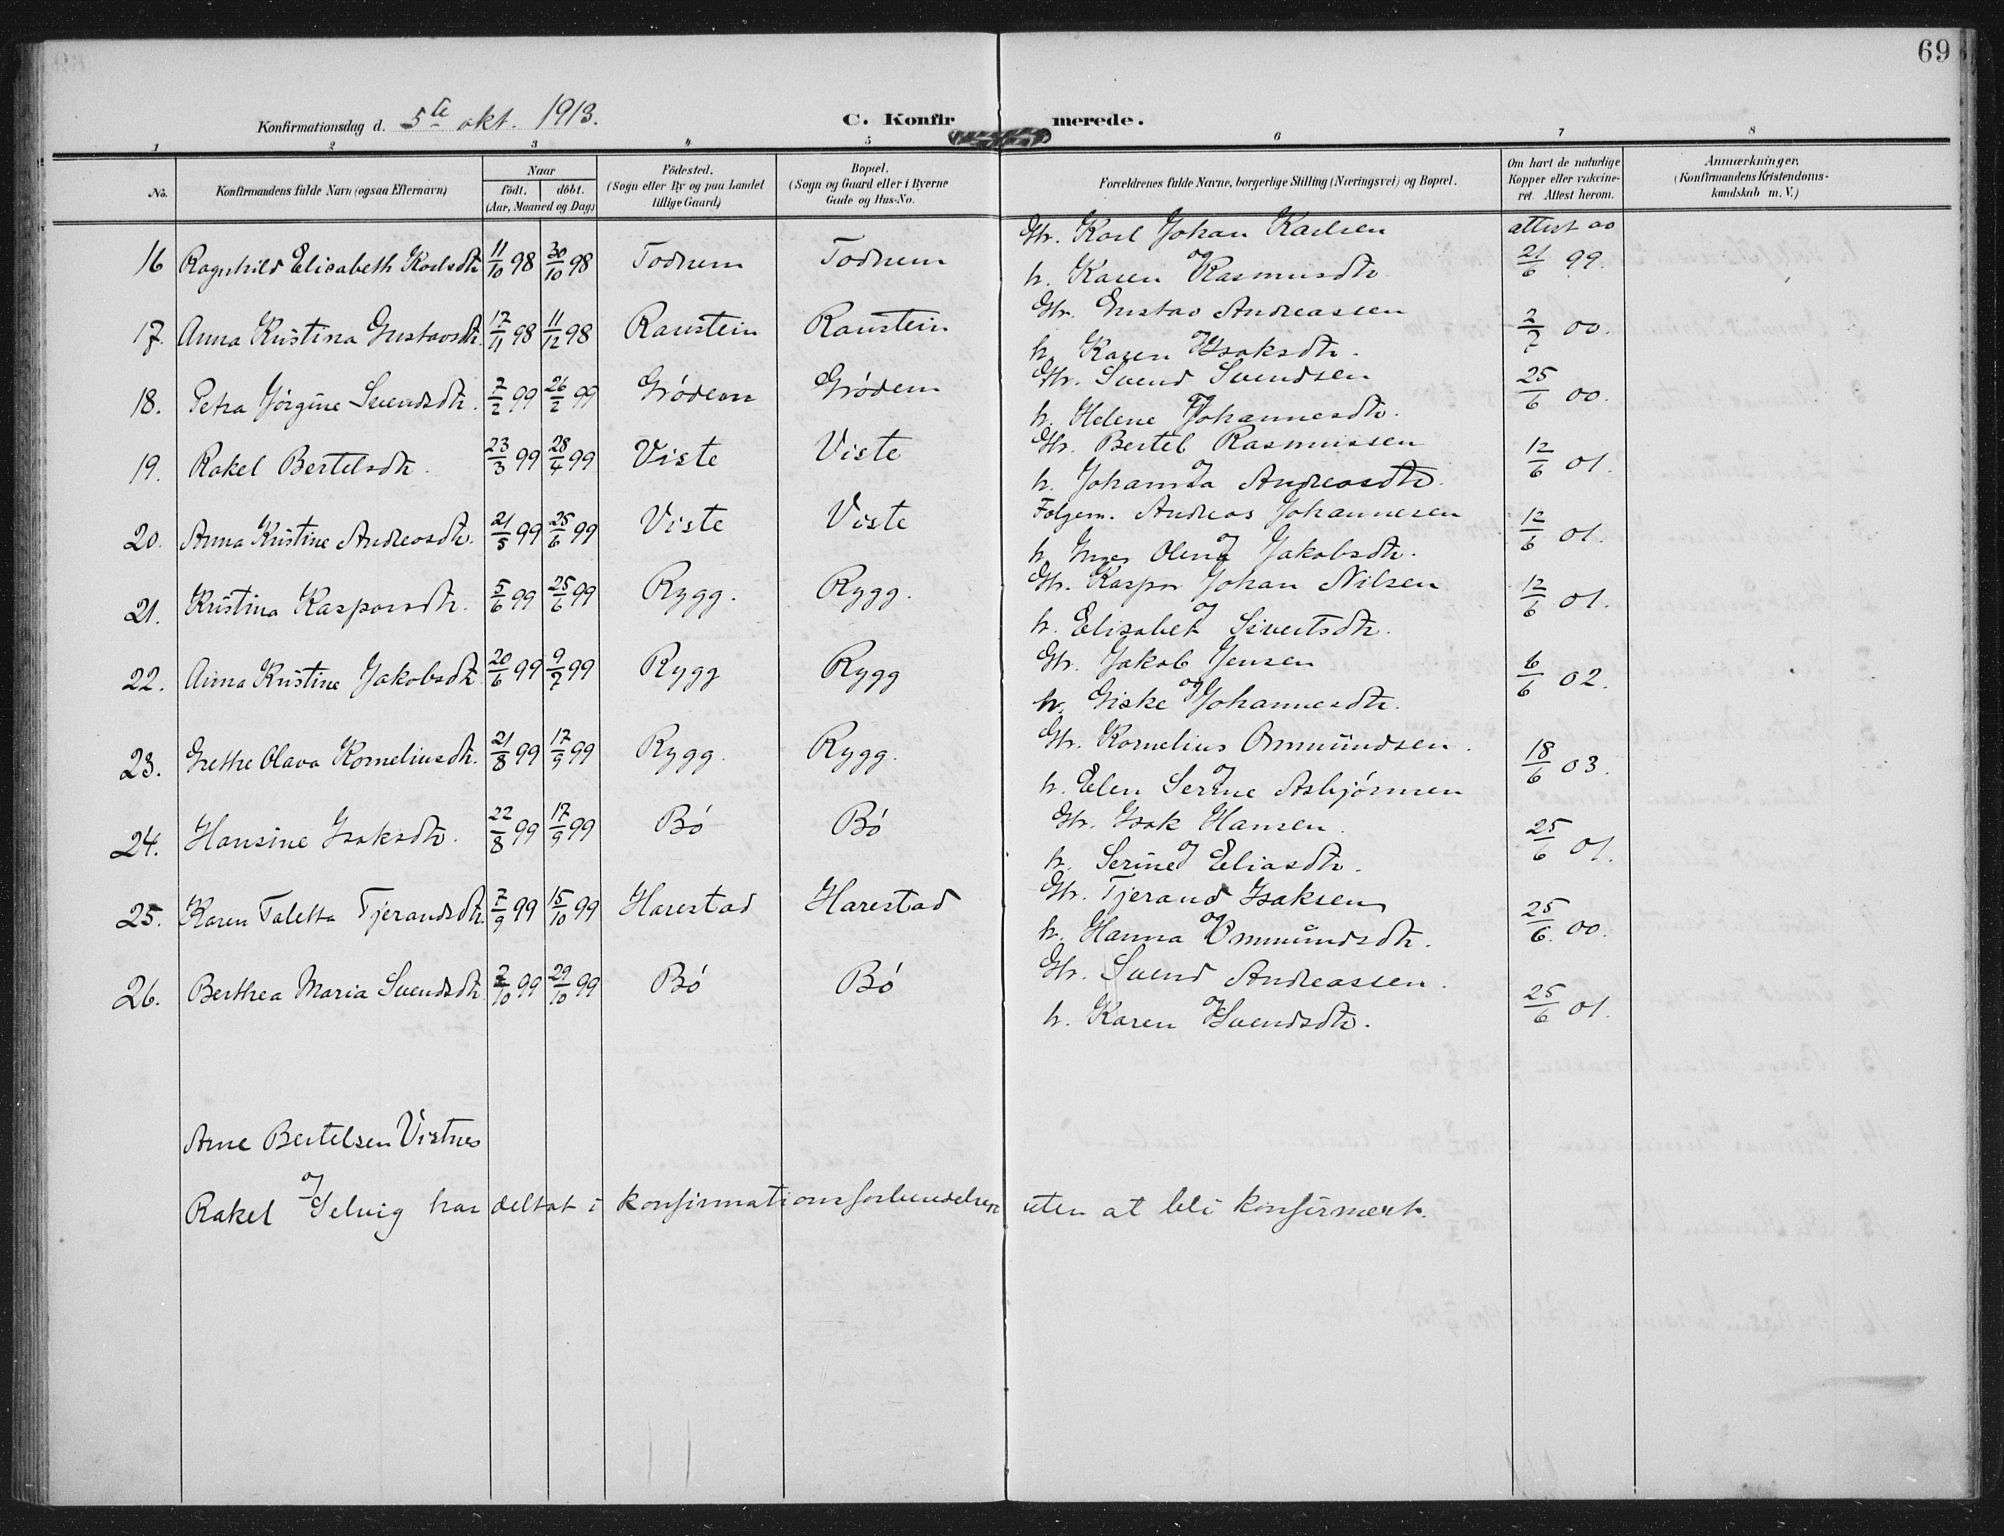 69
Konfirmationsdag d. 5te okt. 1913. C. Konfirmerede.
1 2 3 4 5 6 7 8
No. Konfirmandens fulde Navn (ogsaa Efternavn) Naar födt. döbt. (Aar, Maaned og Dag) Födested. (Sogn eller By og paa Landet tillige Gaard) Bopæl. (Sogn og Gaard eller i Byerne Gade og Hus-No. Forældrenes fulde Navne, borgerlige Stilling (Næringsvei) og Bopæl. Om havt de naturlige Kopper eller vakcineret. Attest herom. Anmærkninger. (Konfirmandens Kristendomskundskab m. V.)
Gbr. Karl Johan Karlsen attest av
16 Ragnhild Elisabeth Karlsdtr. 11/10 98 30/10 98 Todnem Todnem og 21/6 99.
h. Karen Rasmusdtr.
Gbr. Gustav Andreassen
17. Anna Kristina Gustavsdtr. 17/11 98 11/12 98 Ranstein Ranstein og 2/7 00.
h. Karen Isaksdtr.
Gbr. Svend Svendsen
18. Petra Jørgine Svendsdtr. 7/2 99 26/2 99 Grødem Grødem og 25/6 00.
h. Helene Johannesdtr.
Gbr. Bertel Rasmussen
19. Rakel Bertelsdtr. 23/3 99 28/4 99 Viste Viste og 12/6 01.
h. Johanna Andreasdtr.
Følgem. Andreas Johannesen
20. Anna Kristine Andreasdtr. 21/5 99 25/6 99 Viste Viste og 12/6 01.
h. Inger Olena Jakobsdtr.
Gbr. Kaspar Johan Nilsen
21. Kristina Kasparsdtr. 5/6 99 25/6 99 Rygg. Rygg. og 12/6 01.
h. Elisabet Sivertsdtr.
Gbr. Jakob Jensen
22. Anna Kristine Jakobsdtr. 20/6 99 9/7 99 Rygg Rygg og 6/6 02.
h. Giske Johannesdtr.
Gbr. Kornelius Ommundsen.
23. Grethe Olava Korneliusdtr. 21/8 99 17/9 99 Rygg. Rygg. og 18/6 03.
h. Elen Serine Asbjørnsen
Gbr. Isak Hansen.
24. Hansine Isaksdtr. 22/8 99 17/9 99 Bö Bö og 25/6 01.
h. Serine Eliasdtr.
Gbr. Tjerand Isaksen
25. Karen Taletta Tjerandsdtr. 7/9 99 15/10 99 Harestad Harestad og 25/6 00.
h. Hanna Ommundsdtr.
Gbr. Svend Andreassen.
26. Berthea Maria Svendsdtr. 2/10 99 29/10 99 Bö Bö og 25/6 01.
h. Karen Svendsdtr.
Arne Bertelsen Vistnes
og
Rakel Selvig har deltat i konfirmationsforberedelsen uten at bli konfirmert.